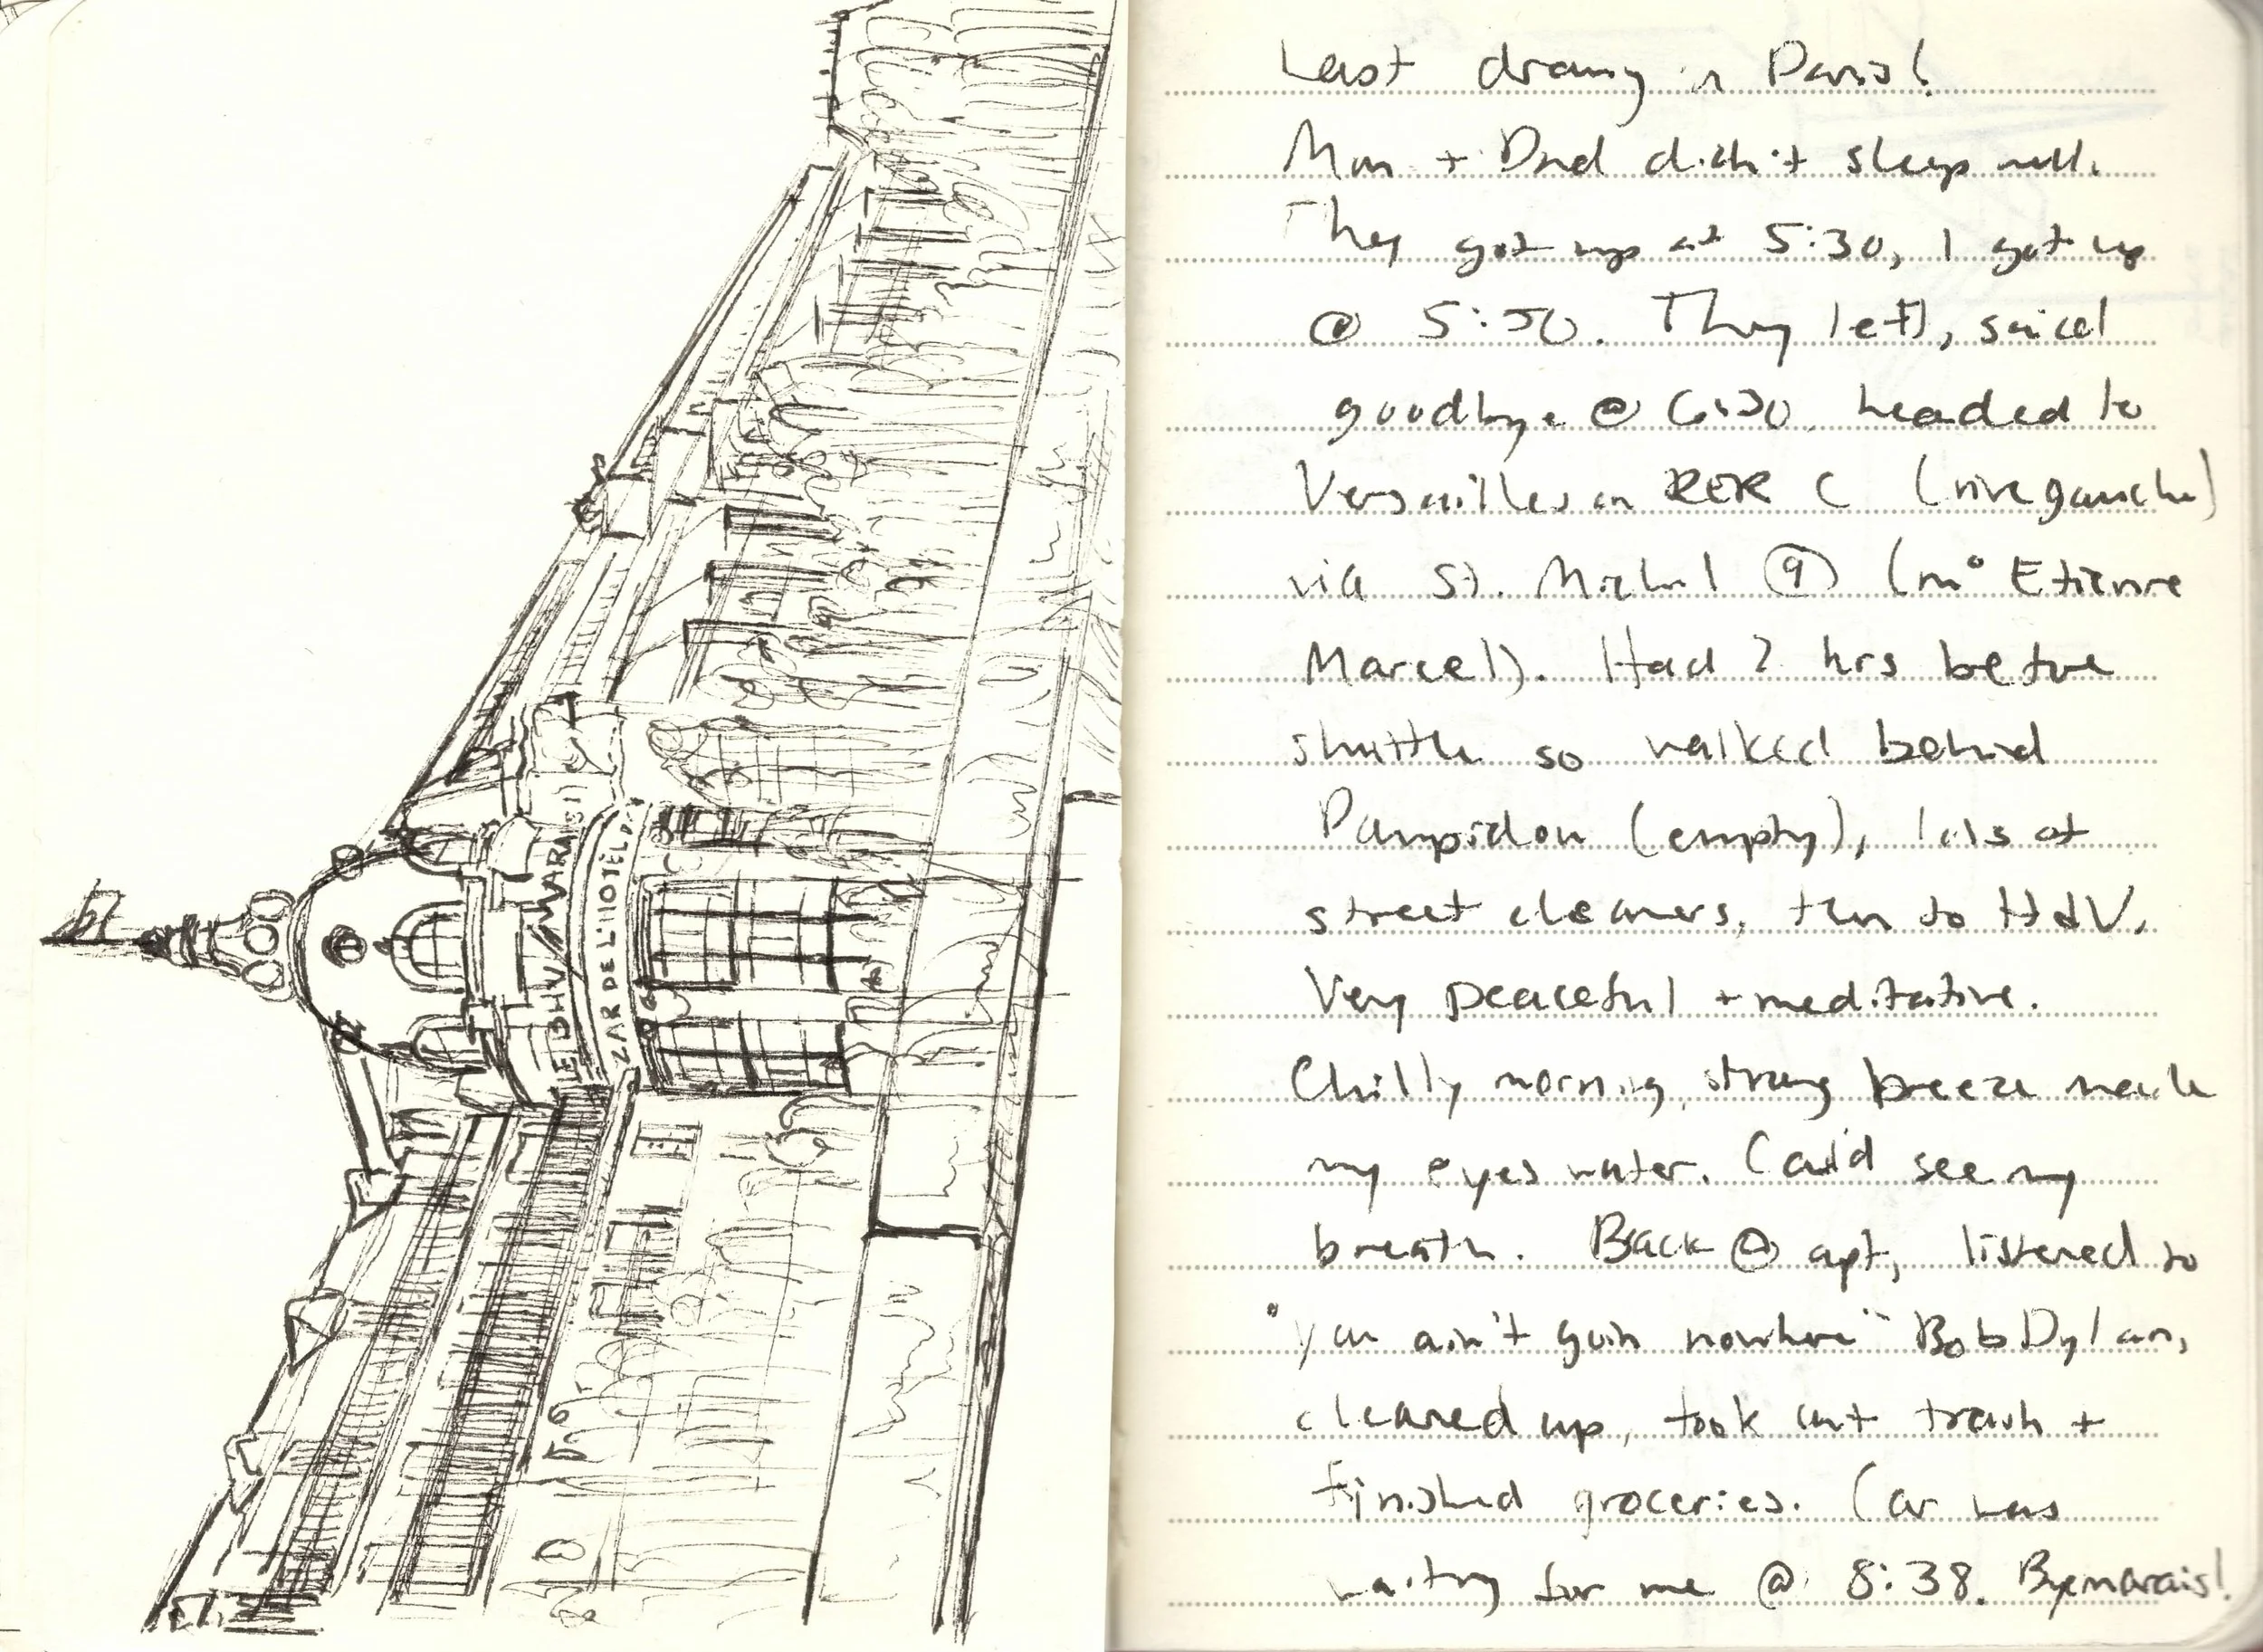 LE BHV/MARAIS
ZAR DE L'HOTEL D
Last drawing in Paris!
Mom + Dad didn't sleep well.
They got up at 5:30, I got up
@ 5:50. They left, said
goodbye @ 6:30. headed to
Versailles on RER C (rive gauche)
via St. Michel (m° Etienne
Marcel). Had 2 hrs before
shuttle so walked behind
Pompidou (empty), lots of
street cleaners, then to HdV.
Very peaceful + meditative.
Chilly morning, strong breeze made
my eyes water. Could see my
breath. Back @ apt, listened to
"you ain't goin nowhere" Bob Dylan,
cleaned up, took out trash +
finished groceries. Car was
waiting for me @ 8:38. Bye marais!